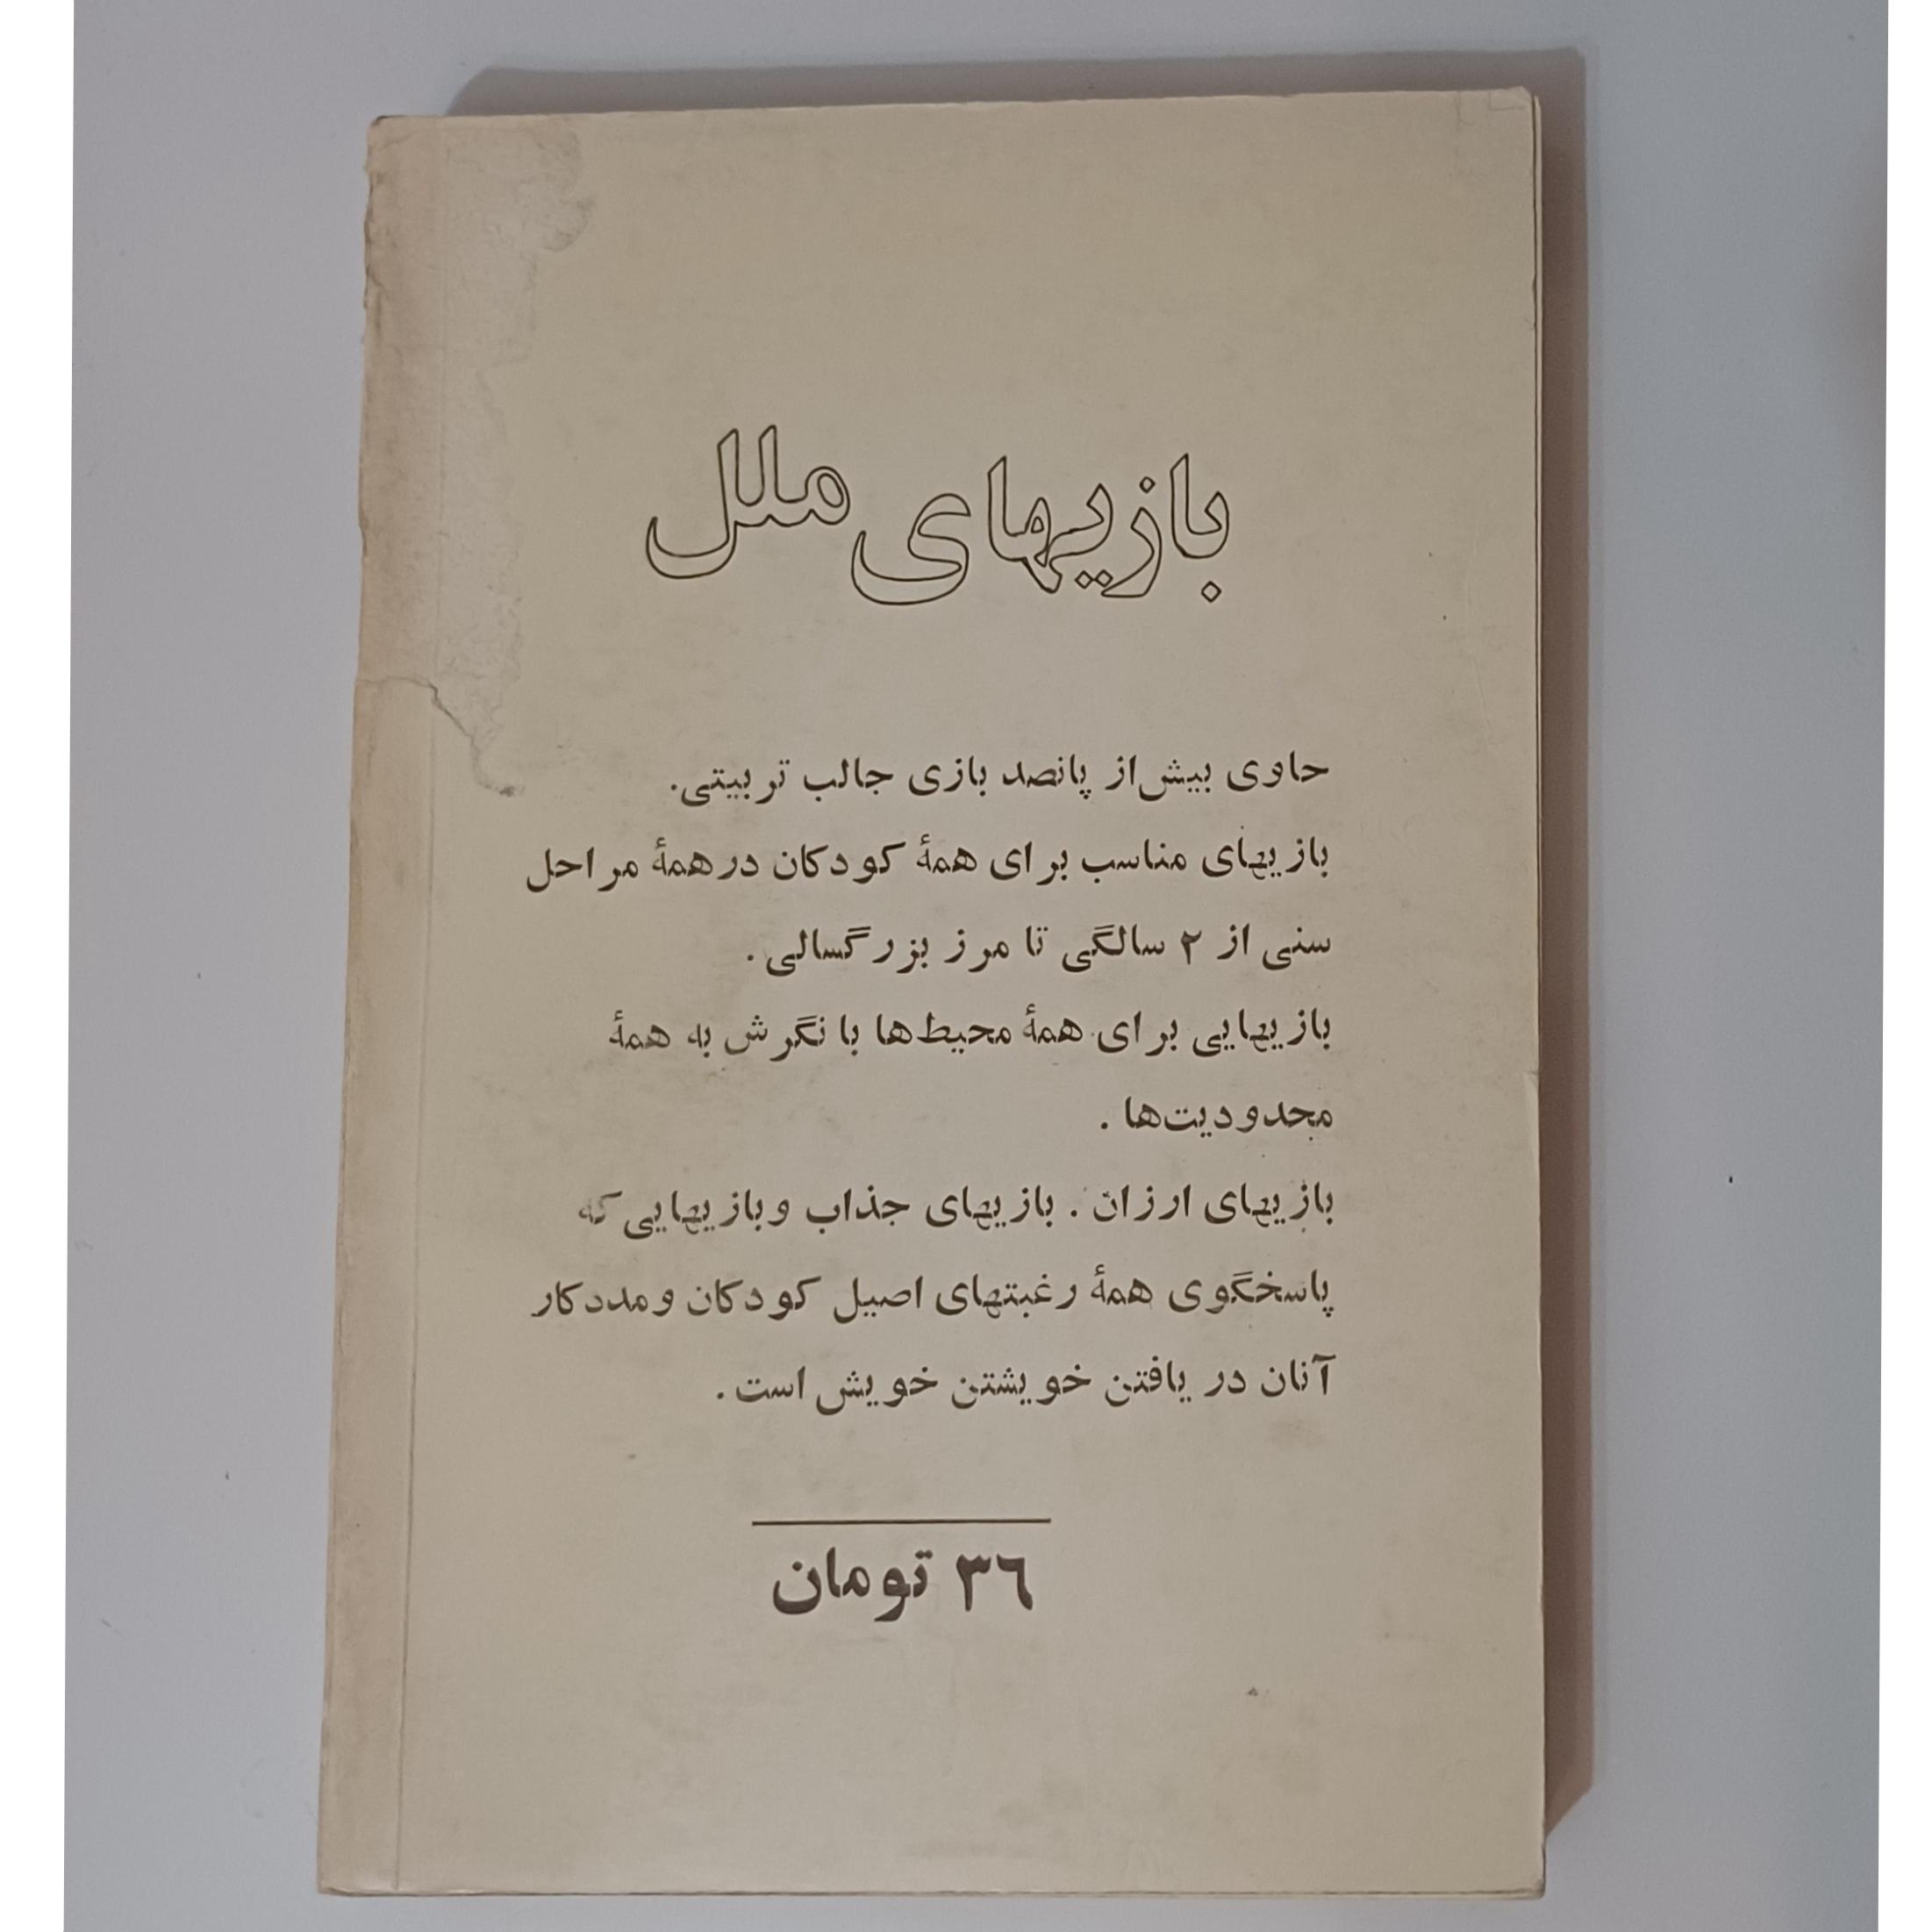 بازیهای ملل
حاوی بیش از پانصد بازی جالب تربیتی.
بازیهای مناسب برای همهٔ کودکان در همهٔ مراحل
سنی از ۲ سالگی تا مرز بزرگسالی.
بازیهایی برای همهٔ محیط‌ها با نگرش به همهٔ
محدودیت‌ها.
بازیهای ارزان. بازیهای جذاب و بازیهایی که
پاسخگوی همهٔ رغبتهای اصیل کودکان و مددکار
آنان در یافتن خویشتن خویش است.
۳۶ تومان